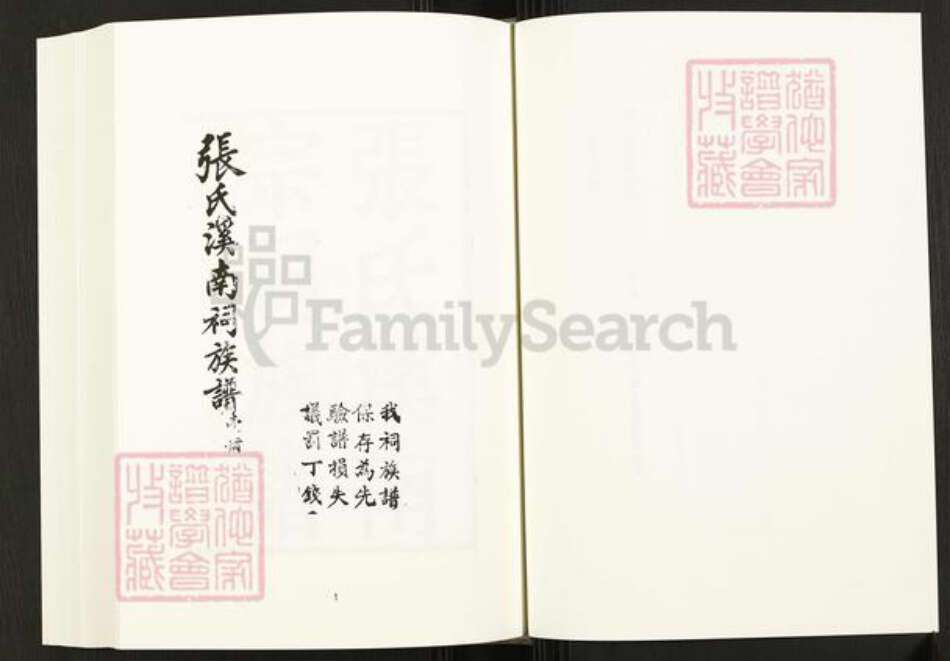 猶他家
譜學會
收藏
我祠族譜
保存為先
驗譜損失
議罰丁錢
張氏溪南祠族譜
猶他家
譜學會
收藏
FamilySearch
1